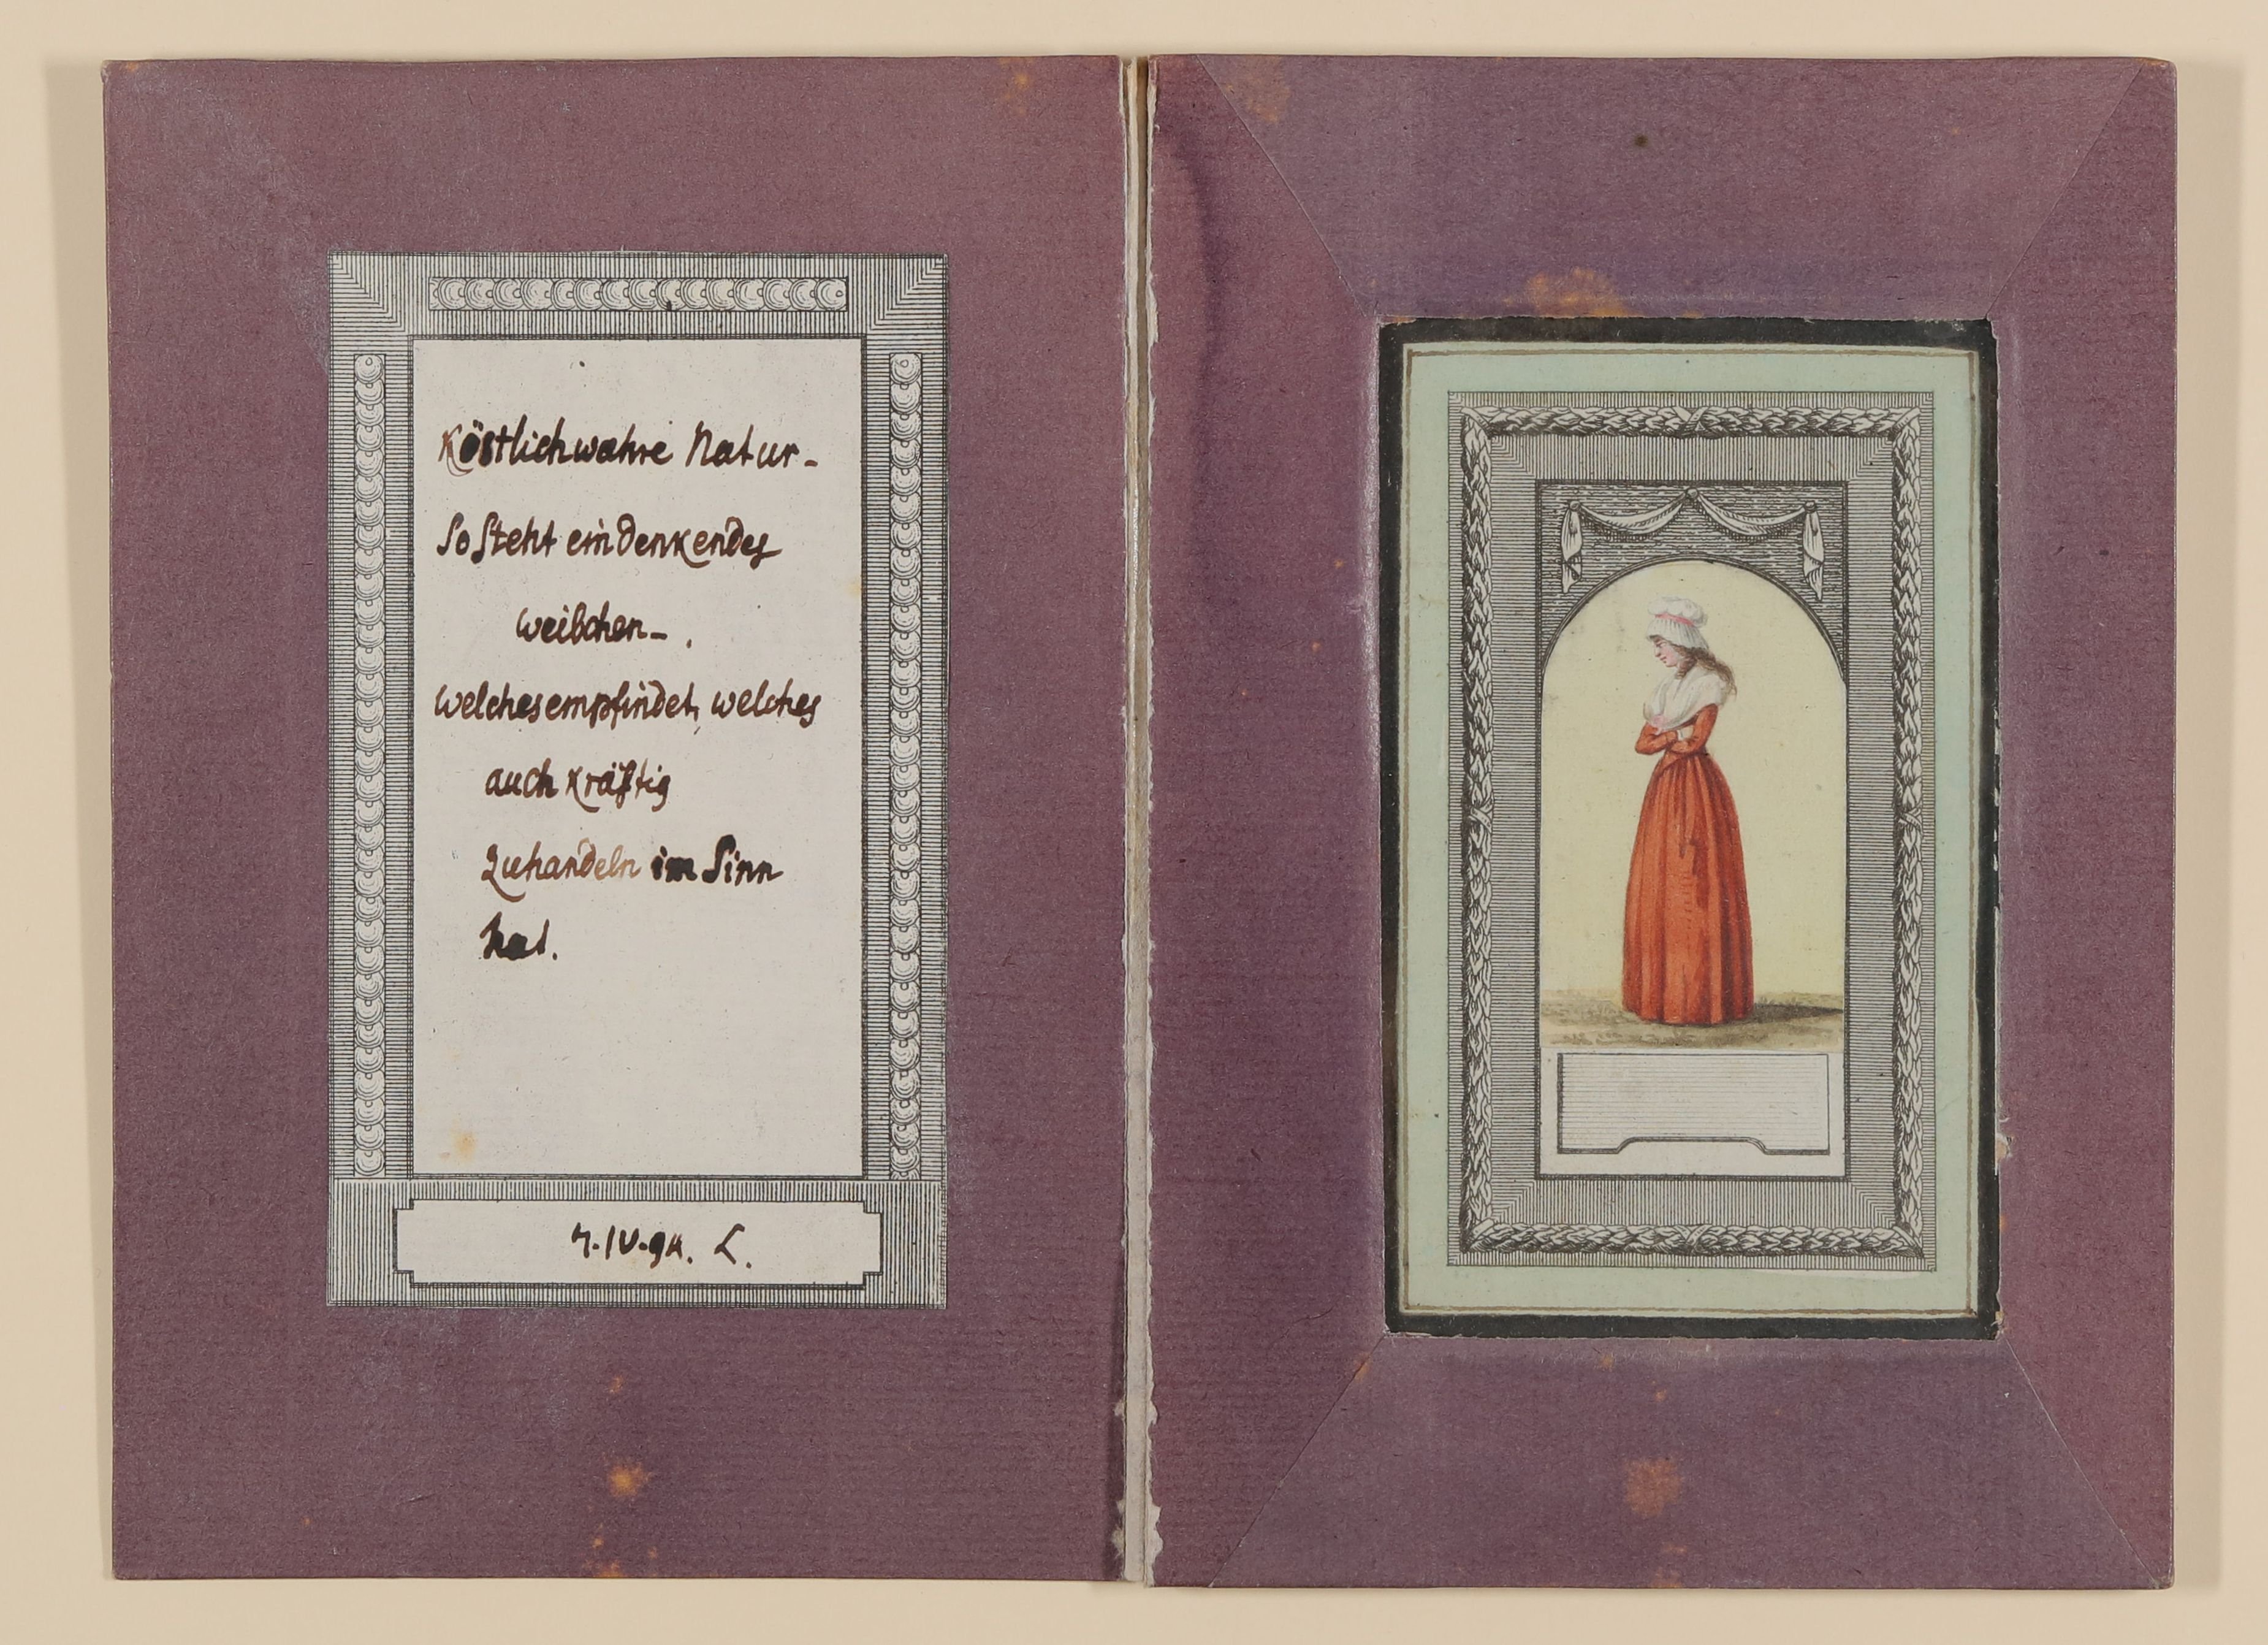 Köstlichwahre Natur-
So steht ein denkendes
weibchen-.
welches empfindet, welches
auch kräftig
zuhandeln im Sinn
hat.
4.IV.94. L.